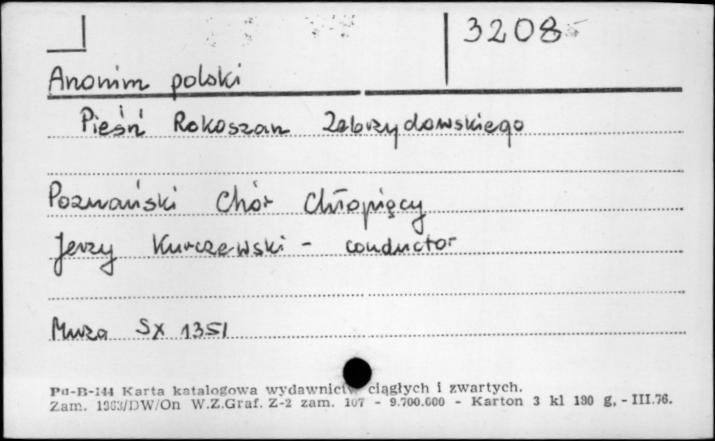 3208
Anonim polski
Pieśń Rokoszan Zebrzydowskiego
Poznański Chór Chłopięcy
Jerzy Kurczewski - conductor
Muza SX 1351
Pu-B-144 Karta katalogowa wydawnictw ciągłych i zwartych.
Zam. 1963/DW/On W.Z.Graf. Z-2 zam. 107 - 9.700.000 - Karton 3 kl 180 g, - III.76.